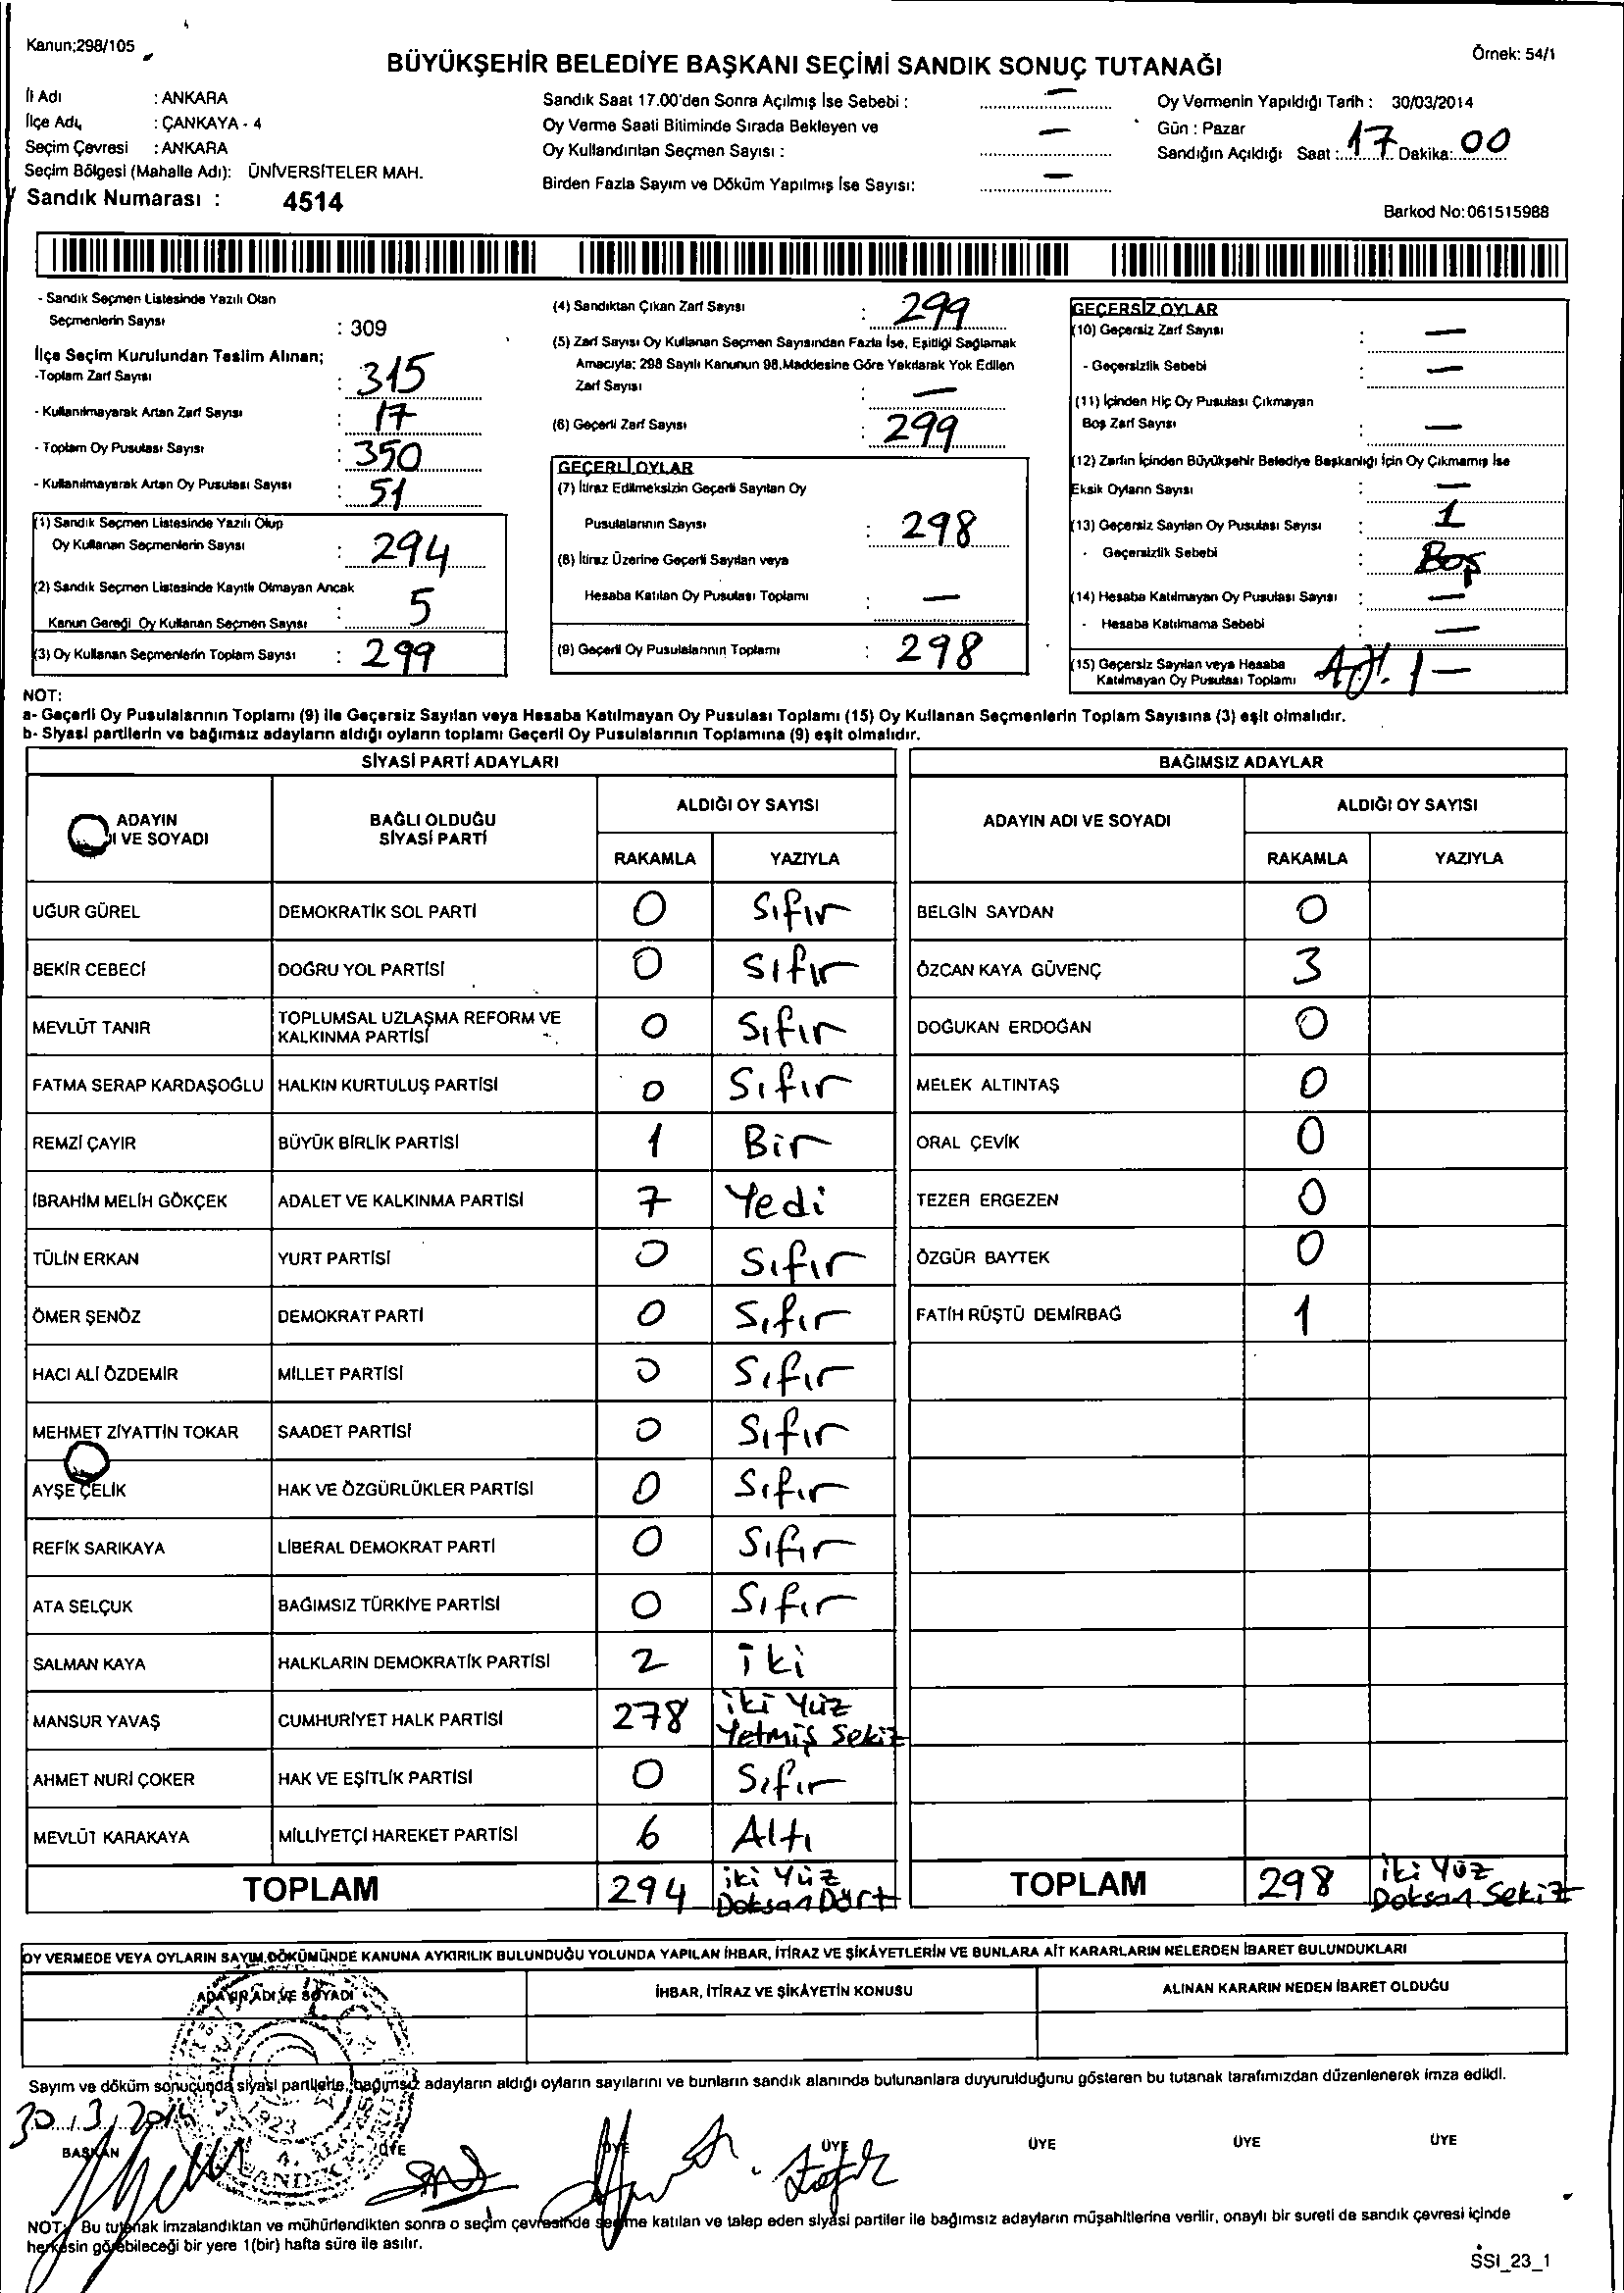 Kanun;298/105
Örnek: 54/1
BÜYÜKŞEHİR BELEDİYE BAŞKANI SEÇİMİ SANDIK SONUÇ TUTANAĞI
İl Adı : ANKARA
İlçe Adı : ÇANKAYA - 4
Seçim Çevresi : ANKARA
Seçim Bölgesi (Mahalle Adı): ÜNİVERSİTELER MAH.
Sandık Numarası : 4514
Sandık Saat 17.00'den Sonra Açılmış İse Sebebi : —
Oy Verme Saati Bitiminde Sırada Bekleyen ve
Oy Kullandırılan Seçmen Sayısı : —
Birden Fazla Sayım ve Döküm Yapılmış İse Sayısı: —
Oy Vermenin Yapıldığı Tarih : 30/03/2014
Gün : Pazar
Sandığın Açıldığı Saat : 17 Dakika: 00
Barkod No:061515988
- Sandık Seçmen Listesinde Yazılı Olan
Seçmenlerin Sayısı : 309
İlçe Seçim Kurulundan Teslim Alınan;
-Toplam Zarf Sayısı : 315
- Kullanılmayarak Artan Zarf Sayısı : 17
- Toplam Oy Pusulası Sayısı : 350
- Kullanılmayarak Artan Oy Pusulası Sayısı : 51
(1) Sandık Seçmen Listesinde Yazılı Olup
Oy Kullanan Seçmenlerin Sayısı : 294
(2) Sandık Seçmen Listesinde Kayıtlı Olmayan Ancak
Kanun Gereği Oy Kullanan Seçmen Sayısı : 5
(3) Oy Kullanan Seçmenlerin Toplam Sayısı : 299
(4) Sandıktan Çıkan Zarf Sayısı : 299
(5) Zarf Sayısı Oy Kullanan Seçmen Sayısından Fazla İse, Eşitliği Sağlamak
Amacıyla; 298 Sayılı Kanunun 98.Maddesine Göre Yakılarak Yok Edilen
Zarf Sayısı : —
(6) Geçerli Zarf Sayısı : 299
GEÇERLİ OYLAR
(7) İtiraz Edilmeksizin Geçerli Sayılan Oy
Pusulalarının Sayısı : 298
(8) İtiraz Üzerine Geçerli Sayılan veya
Hesaba Katılan Oy Pusulası Toplamı : —
(9) Geçerli Oy Pusulalarının Toplamı : 298
GEÇERSİZ OYLAR
(10) Geçersiz Zarf Sayısı : —
- Geçersizlik Sebebi : —
(11) İçinden Hiç Oy Pusulası Çıkmayan
Boş Zarf Sayısı : —
(12) Zarfın İçinden Büyükşehir Belediye Başkanlığı İçin Oy Çıkmamış İse
Eksik Oyların Sayısı : —
(13) Geçersiz Sayılan Oy Pusulası Sayısı : 1
- Geçersizlik Sebebi : Boş
(14) Hesaba Katılmayan Oy Pusulası Sayısı : —
- Hesaba Katılmama Sebebi : —
(15) Geçersiz Sayılan veya Hesaba
Katılmayan Oy Pusulası Toplamı 1 —
NOT:
a- Geçerli Oy Pusulalarının Toplamı (9) ile Geçersiz Sayılan veya Hesaba Katılmayan Oy Pusulası Toplamı (15) Oy Kullanan Seçmenlerin Toplam Sayısına (3) eşit olmalıdır.
b- Siyasi partilerin ve bağımsız adayların aldığı oyların toplamı Geçerli Oy Pusulalarının Toplamına (9) eşit olmalıdır.
SİYASİ PARTİ ADAYLARI BAĞIMSIZ ADAYLAR
ADAYIN
I VE SOYADI
BAĞLI OLDUĞU
SİYASİ PARTİ
ALDIĞI OY SAYISI
RAKAMLA YAZIYLA
ADAYIN ADI VE SOYADI
ALDIĞI OY SAYISI
RAKAMLA YAZIYLA
UĞUR GÜREL DEMOKRATİK SOL PARTİ 0 Sıfır BELGİN SAYDAN 0
BEKİR CEBECİ DOĞRU YOL PARTİSİ 0 Sıfır ÖZCAN KAYA GÜVENÇ 3
MEVLÜT TANIR TOPLUMSAL UZLAŞMA REFORM VE KALKINMA PARTİSİ 0 Sıfır DOĞUKAN ERDOĞAN 0
FATMA SERAP KARDAŞOĞLU HALKIN KURTULUŞ PARTİSİ 0 Sıfır MELEK ALTINTAŞ 0
REMZİ ÇAYIR BÜYÜK BİRLİK PARTİSİ 1 Bir ORAL ÇEVİK 0
İBRAHİM MELİH GÖKÇEK ADALET VE KALKINMA PARTİSİ 7 Yedi TEZER ERGEZEN 0
TÜLİN ERKAN YURT PARTİSİ 0 Sıfır ÖZGÜR BAYTEK 0
ÖMER ŞENÖZ DEMOKRAT PARTİ 0 Sıfır FATİH RÜŞTÜ DEMİRBAĞ 1
HACI ALİ ÖZDEMİR MİLLET PARTİSİ 0 Sıfır
MEHMET ZİYATTİN TOKAR SAADET PARTİSİ 0 Sıfır
AYŞE ÇELİK HAK VE ÖZGÜRLÜKLER PARTİSİ 0 Sıfır
REFİK SARIKAYA LİBERAL DEMOKRAT PARTİ 0 Sıfır
ATA SELÇUK BAĞIMSIZ TÜRKİYE PARTİSİ 0 Sıfır
SALMAN KAYA HALKLARIN DEMOKRATİK PARTİSİ 2 iki
MANSUR YAVAŞ CUMHURİYET HALK PARTİSİ 278 iki Yüz Yetmiş Sekiz
AHMET NURİ ÇOKER HAK VE EŞİTLİK PARTİSİ 0 Sıfır
MEVLÜT KARAKAYA MİLLİYETÇİ HAREKET PARTİSİ 6 Altı
TOPLAM 294 iki Yüz Doksan Dört TOPLAM 298 iki Yüz Doksan Sekiz
OY VERMEDE VEYA OYLARIN SAYIM DÖKÜMÜNDE KANUNA AYKIRILIK BULUNDUĞU YOLUNDA YAPILAN İHBAR, İTİRAZ VE ŞİKÂYETLERİN VE BUNLARA AİT KARARLARIN NELERDEN İBARET BULUNDUKLARI
ADAYIN ADI VE SOYADI İHBAR, İTİRAZ VE ŞİKÂYETİN KONUSU ALINAN KARARIN NEDEN İBARET OLDUĞU
Sayım ve döküm sonucunda siyasi partilerle, bağımsız adayların aldığı oyların sayılarını ve bunların sandık alanında bulunanlara duyurulduğunu gösteren bu tutanak tarafımızdan düzenlenerek imza edildi.
30.3.2014
BAŞKAN ÜYE ÜYE ÜYE ÜYE ÜYE ÜYE
NOT: Bu tutanak imzalandıktan ve mühürlendikten sonra o seçim çevresinde seçime katılan ve talep eden siyasi partiler ile bağımsız adayların müşahitlerine verilir, onaylı bir sureti de sandık çevresi içinde
herkesin görebileceği bir yere 1(bir) hafta süre ile asılır.
SSI_23_1